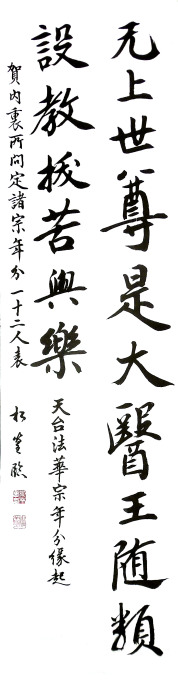 无上世尊是大醫王随類
設教拔苦與樂
天台法華宗年分縁起
賀内裏所問定諸宗年分一十二人表